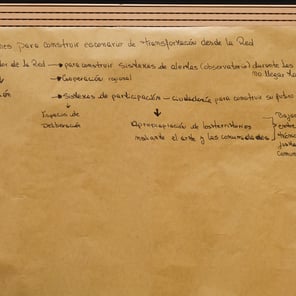 para construir escenario de transformación desde la Red
de la Red → para construir sistemas de alertas (observatorio) durante los
no llegar
→ Cooperación regional
→ Sistemas de participación — ciudadanía para construir su futuro
Espacios de
Deliberación
Apropiación de los territorios
mediante el arte y las comunidades